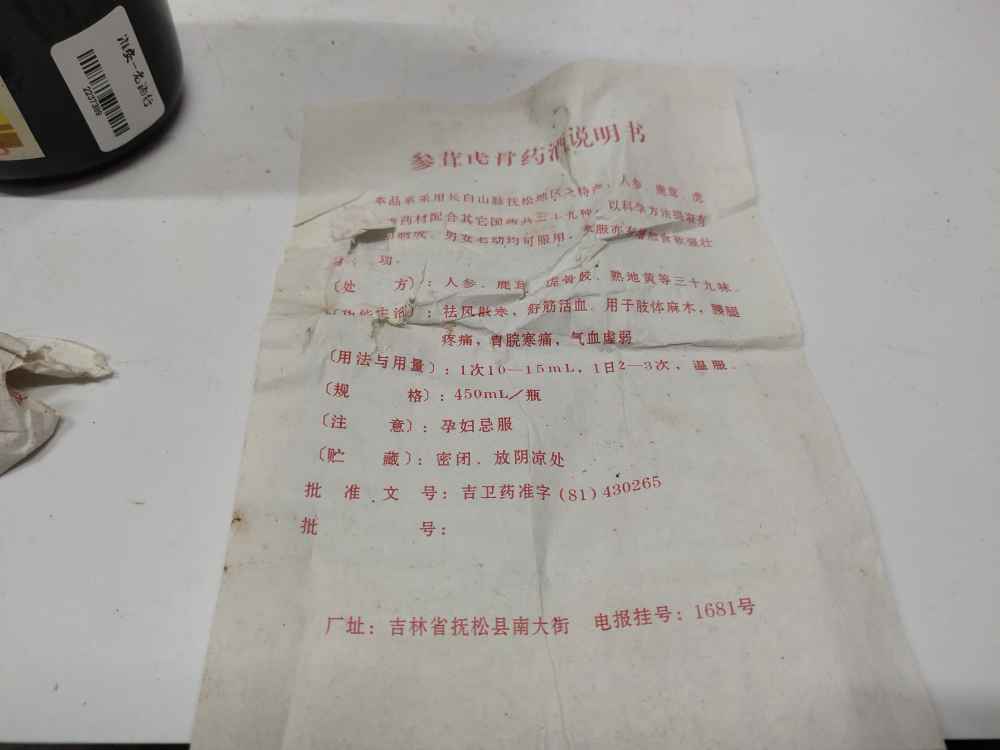 淮安一老酒行
2237389
参茸虎骨药酒说明书
本品系采用长白山脉抚松地区之特产，人参 鹿茸 虎
药材配合其它国药共三十九种，以科学方法提
制成，男女老幼均可服用，
功。
〔处 方〕：人参、鹿茸、虎骨胶、熟地黄等三十九味。
〔功能主治〕：祛风散寒，舒筋活血。用于肢体麻木，腰腿
疼痛，胃脘寒痛，气血虚弱
〔用法与用量〕：1次10—15mL，1日2—3次，温服。
〔规 格〕：450mL／瓶
〔注 意〕：孕妇忌服
〔贮 藏〕：密闭、放阴凉处
批 准 文 号：吉卫药准字(81)430265
批 号：
厂址：吉林省抚松县南大街 电报挂号：1681号